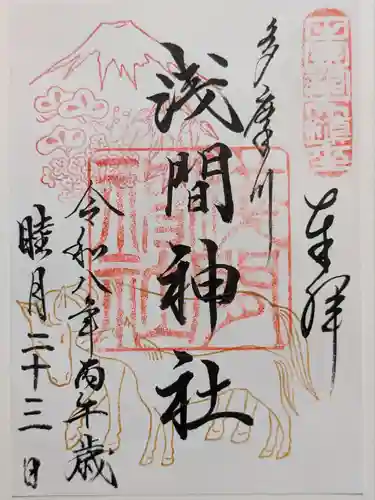 奉拝
多摩川
浅間神社
令和八年丙午歳
睦月二十三日